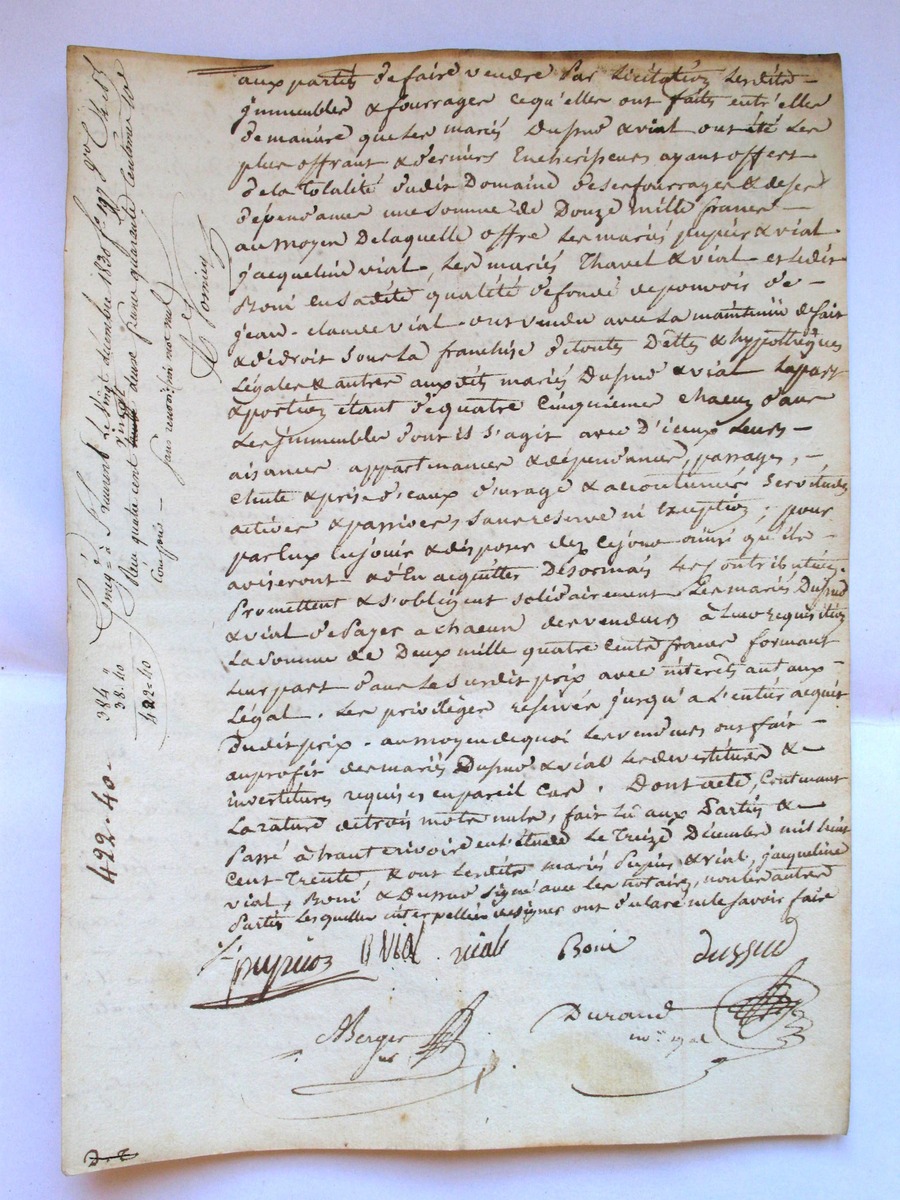 aux partis de faire vendre par licitation lesdits
jmmeubles & fourrages ce qu'elles ont faits entr'elles
de manière que les mariés Dussud & vial ont été les
plus offrant & derniers Encherisseurs ayant offert
de la totalité dudit Domaine de ses fourrages & de ses
dépendances une somme de Douze mille francs
au moyen de laquelle offre les mariés pupier & vial
jacqueline vial, les mariés Thavel & vial et ledit
Boni en sadite qualité de fondé de pouvoir de
jean-claude vial ont vendu avec la maintenüe de fait
& de droit sous la franchise de toutes Dettes & hypothèques
Légales & autres auxdits mariés Dussud & vial la part
& portion étant de quatre cinquieme chacun dans
les jmmeubles dont il s'agit avec d'iceux leurs
aisances appartenances & dépendances, passages,
chute & prise d'eaux d'usage & accoutumés servitudes
actives & passives, sans reserve ni Exception, pour
par Eux en jouir & disposer dez ce jour ainsi qu'ils
aviseront & d'En acquitter Désormais les contributions.
Promettent & s'obligent solidairement les mariés Dussud
& vial de Payer a chacun des vendeurs à leur requisition
la somme de Deux mille quatre Cents francs formant
leur part dans le susdit prix avec interets au taux
Légal. Les privilèges reservés jusqu'a l'entier acquit
Dudit prix. au moyen de quoi les vendeurs ont fait
au profit des mariés Dussud & vial les devestitures &
investitures requises en pareil cas. Dont acte, Contenant
la rature de trois mots nuls, fait lû aux Parties &
Passé à haut rivoire en l'étude le Treize Décembre mil huit
Cent Trente & ont lesdits mariés Pupier & vial, jacqueline
vial, Boni & Dussud signé avec les notaires, non les autres
Parties lesquelles interpellées de signer ont déclaré ne le savoir faire
vial
Boni
dussud
Berger
Durand
Enreg.é à St Laurent le vingt décembre 1830 f.o 19
Reçu quatre cent vingt deux francs quarante centimes
Compris
sans renvoi ni mot nul
384 "
38.40
422=40
422-40